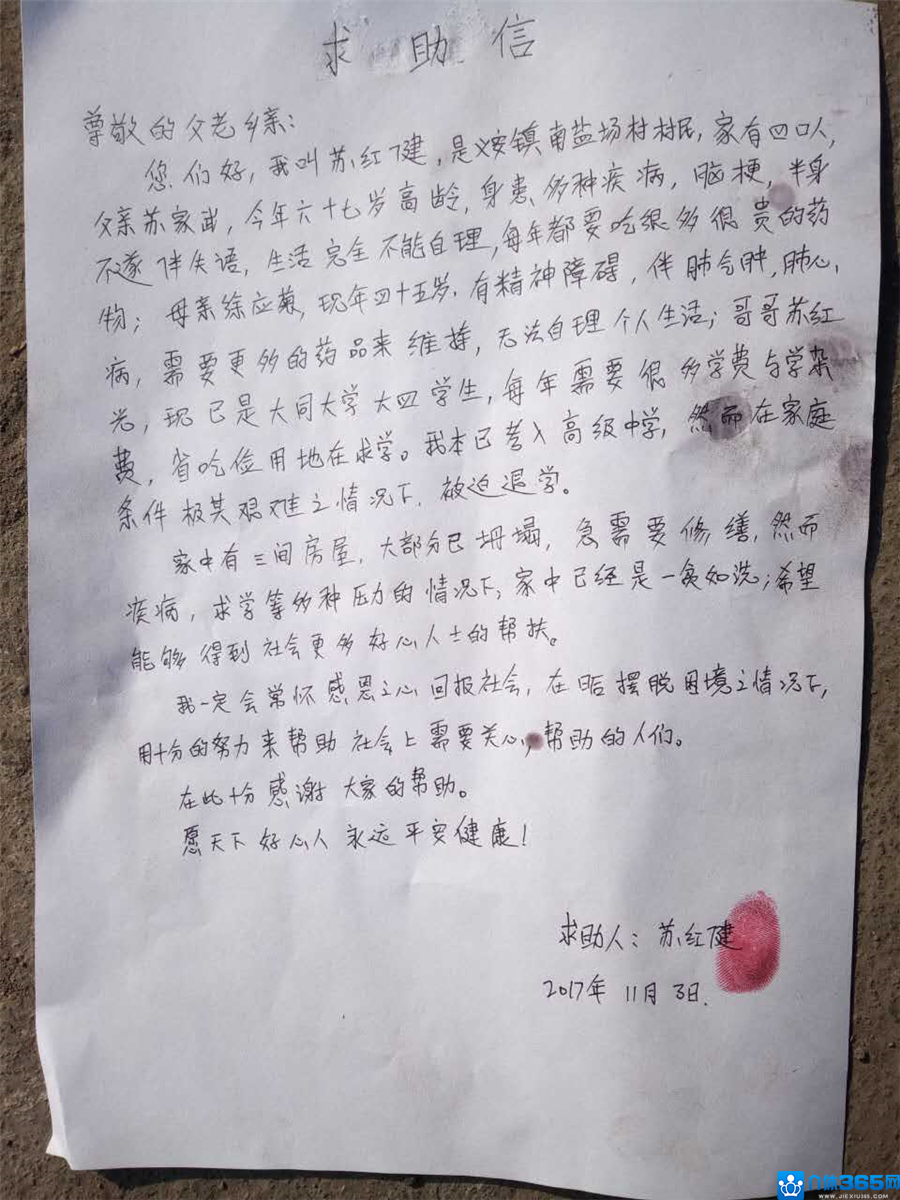 求助信
尊敬的父老乡亲：
您们好，我叫苏红健，是义安镇南盐场村村民，家有四口人，
父亲苏家武，今年六十七岁高龄，身患多种疾病，脑梗，半身
不遂伴失语，生活完全不能自理，每年都要吃很多很贵的药
物；母亲徐应菊，现年四十五岁．有精神障碍，伴肺气肿，肺心
病，需要更多的药品来维持，无法自理个人生活；哥哥苏红
光，现已是大同大学大四学生，每年需要很多学费与学杂
费，省吃俭用地在求学。我本已考入高级中学，然而在家庭
条件极其艰难之情况下，被迫退学。
家中有三间房屋，大部分已坍塌，急需要修缮，然而
疾病，求学等多种压力的情况下，家中已经是一贫如洗；希望
能够得到社会更多好心人士的帮扶。
我一定会常怀感恩之心回报社会，在后摆脱困境之情况下，
用十分的努力来帮助社会上需要关心，帮助的人们。
在此十分感谢大家的帮助。
愿天下好心人永远平安健康！
求助人：苏红健
2017年11月3日．
介休365网
WWW.JIEXIU365.COM